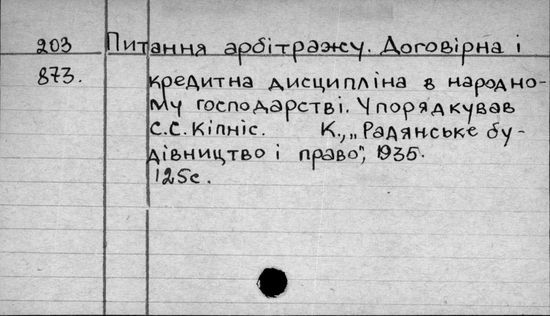 203 Питання арбітражу. Договірна і
873. кредитна дисципліна в народно-
му господарстві. Упорядкував
С.С. Кіпніс. К., „Радянське бу-
дівництво і право", 1935.
125с.